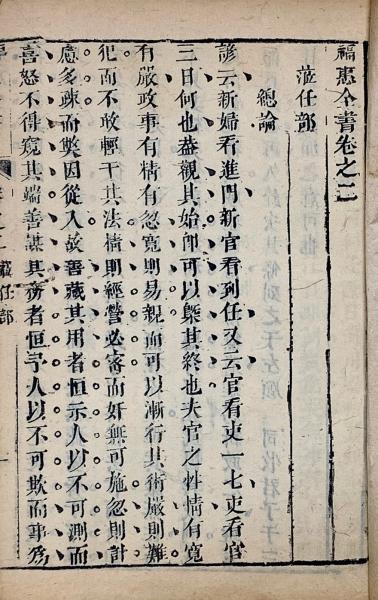 福惠全書卷之二
蒞任部
總論
諺云新婦看進門新官看到任又云官看吏一七吏看官
三日何也葢觀其始卽可以槩其終也夫官之性情有寛
有嚴政事有精有忽寛則易親而可以漸行其術嚴則難
犯而不敢輕干其法精則經營必審而奸無可施忽則計
慮多疎而獘因從入故善藏其用者恒示人以不可測而
喜怒不得窺其端善謀其務者恒予人以不可欺而事爲
蒞任部